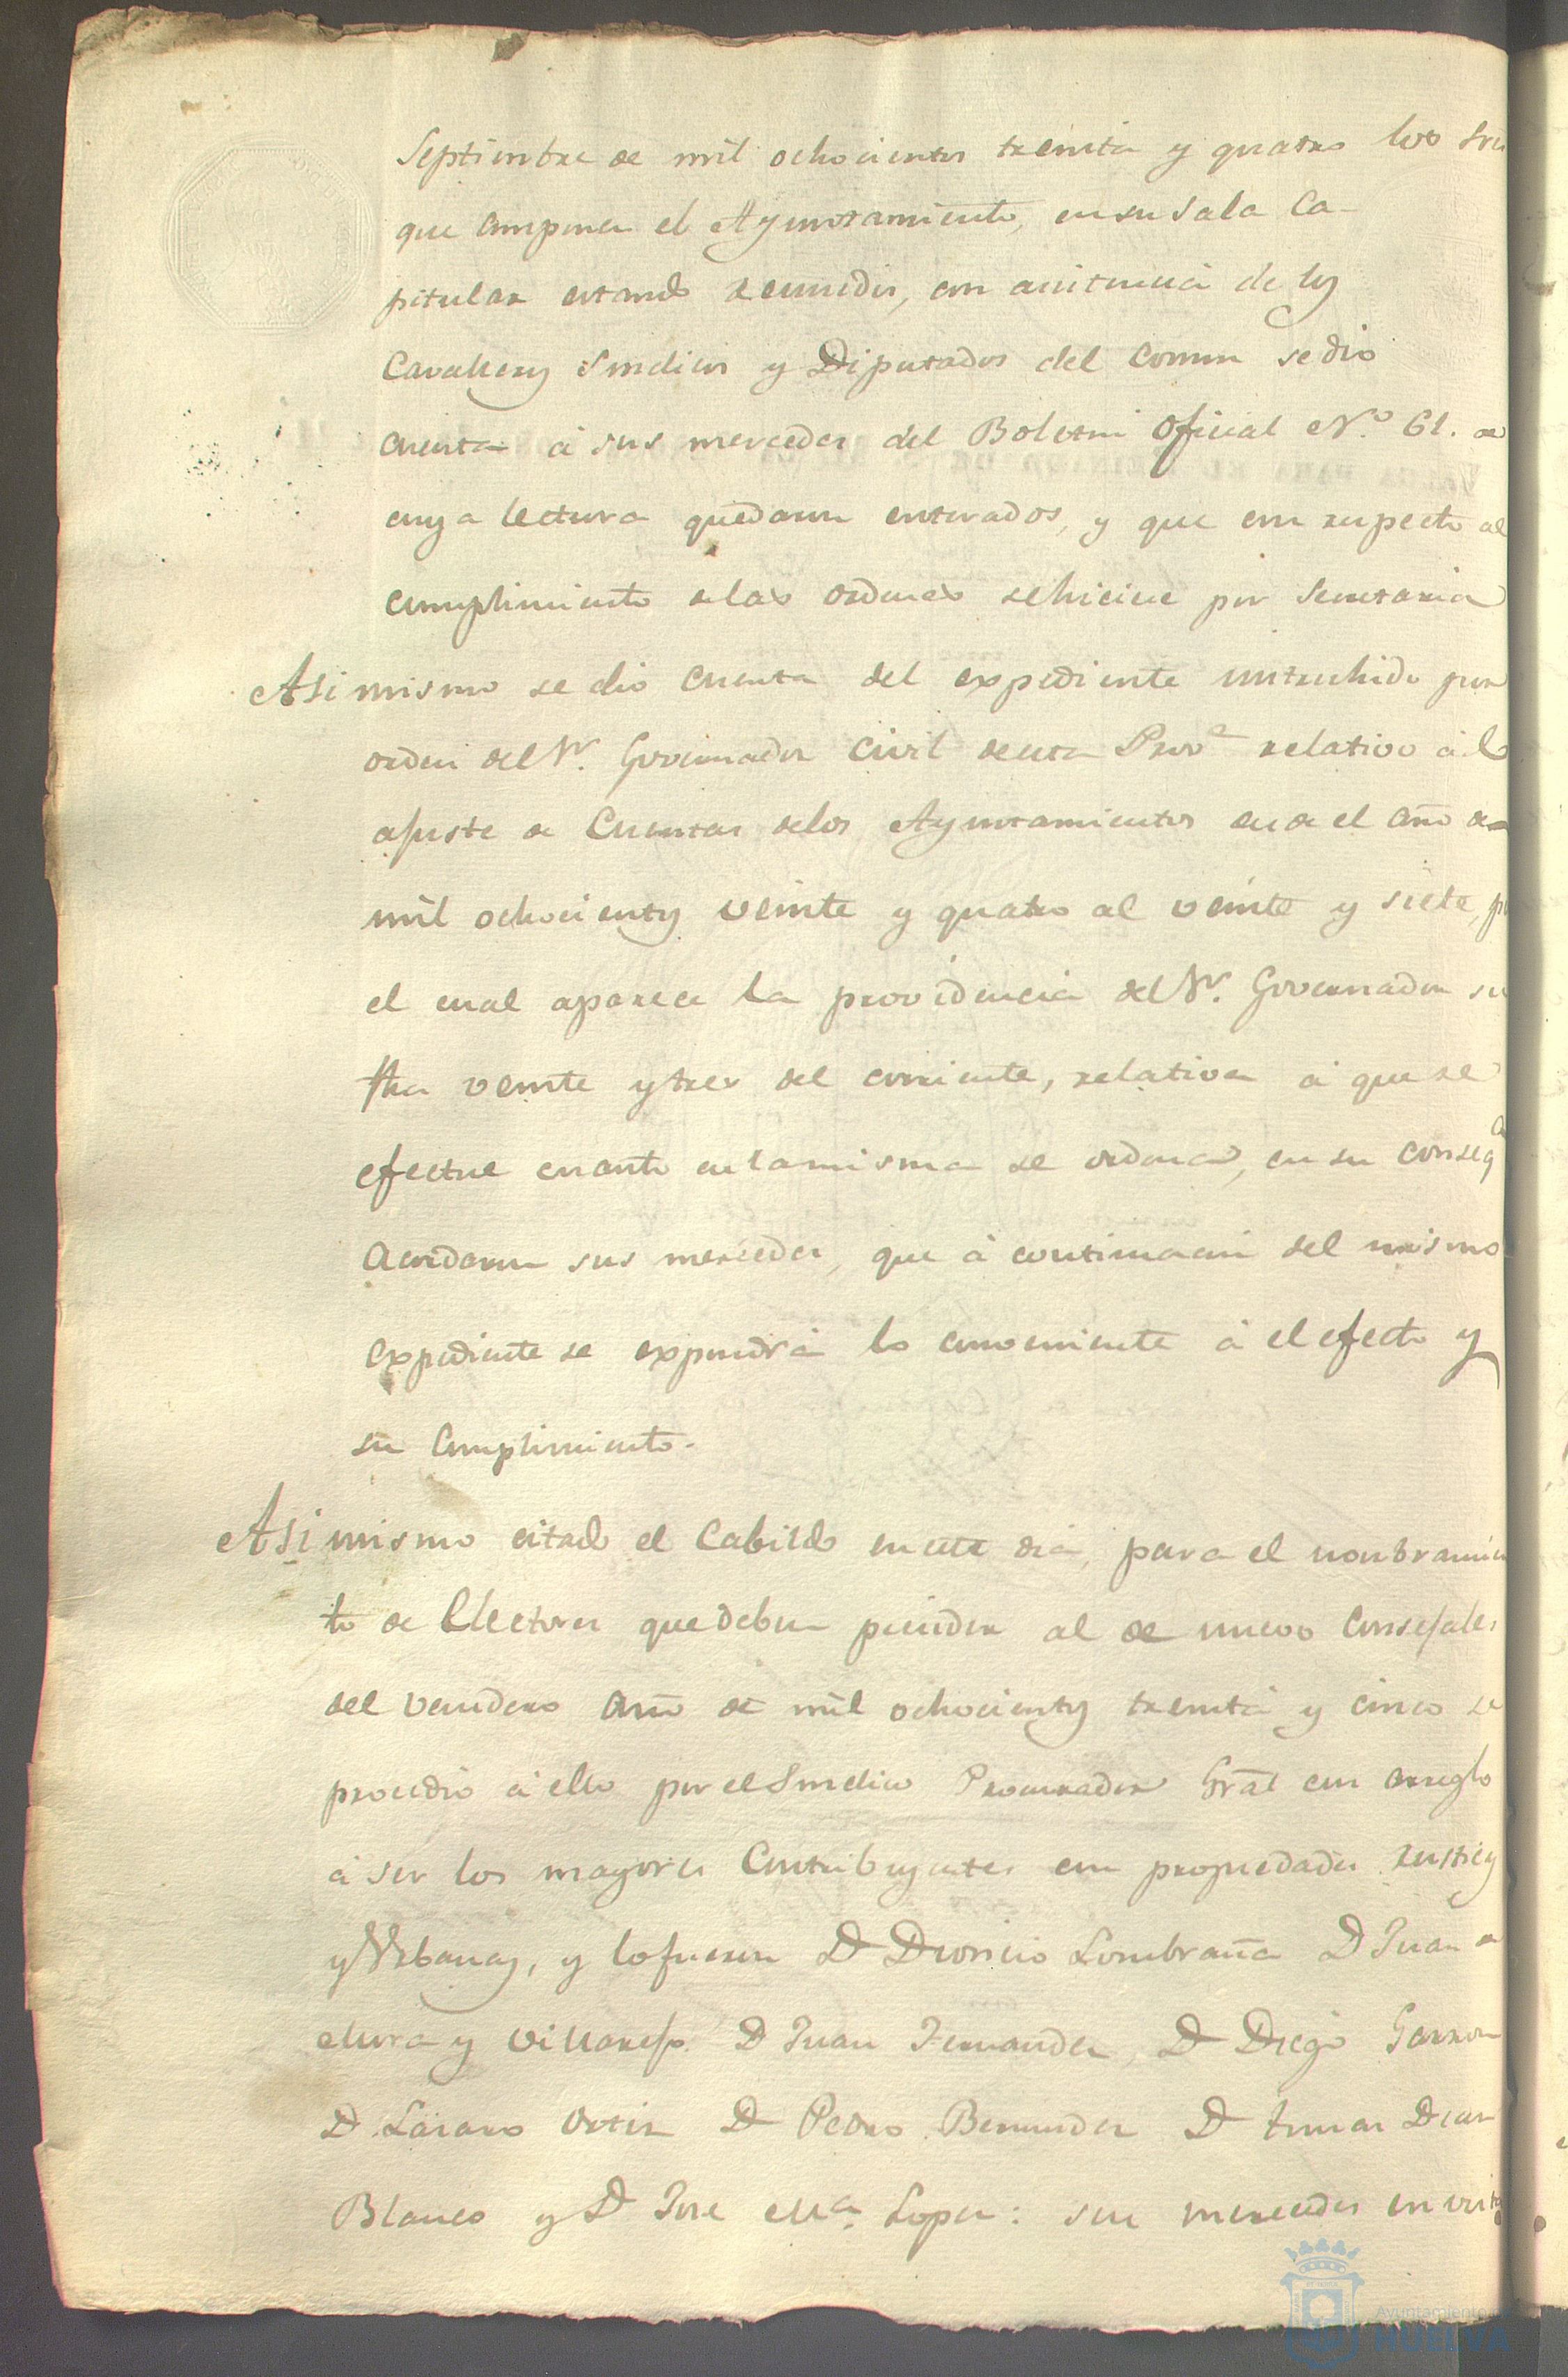 Septiembre de mil ochocientos treinta y quatro los Sres
que componen el Ayuntamiento, en su Sala Ca-
pitular estando reunidos, con asistencia de los
Cavalleros Sindicos y Diputados del Comun se dio
cuenta á sus mercedes del Boletin Oficial N.º 61. de
cuya lectura quedaron enterados, y que con respecto al
cumplimiento de las ordenes se hiciese por Secretaria
Asi mismo se dio cuenta del expediente instruhido por
orden del Sr. Governador Civil de esta Prov.ª relativo á el
ajuste de Cuentas de los Ayuntamientos desde el año de
mil ochocientos veinte y quatro al veinte y siete, p
el cual aparece la providencia del Sr. Governador su
fha veinte y tres del corriente, relativa á que se
efectue cuanto en la misma se ordena, en su conseq.ª
Acordaron sus mercedes, que á continuacion del mismo
expediente se expondrá lo combeniente á el efecto y
su Cumplimiento.
Asi mismo citado el Cabildo en este dia, para el nombramien
to de Electores que deben preceder al de nuevo Consejales
del venidero año de mil ochocientos treinta y cinco se
procedio á ello por el Sindico Procurador Gral con arreglo
á ser los mayores Contribuyentes con propiedades rusticas
y Urbanas, y lo fueron D Dionicio Sombraña D Juan de
Mora y Villarejo D Juan Fernandez, D Diego Garzon
D Lazaro Ortiz D Pedro Bermudez D Tomas Diaz
Blanco y D Jose M.ª Lopez: sus mercedes en vista
Ayuntamiento
HUELVA